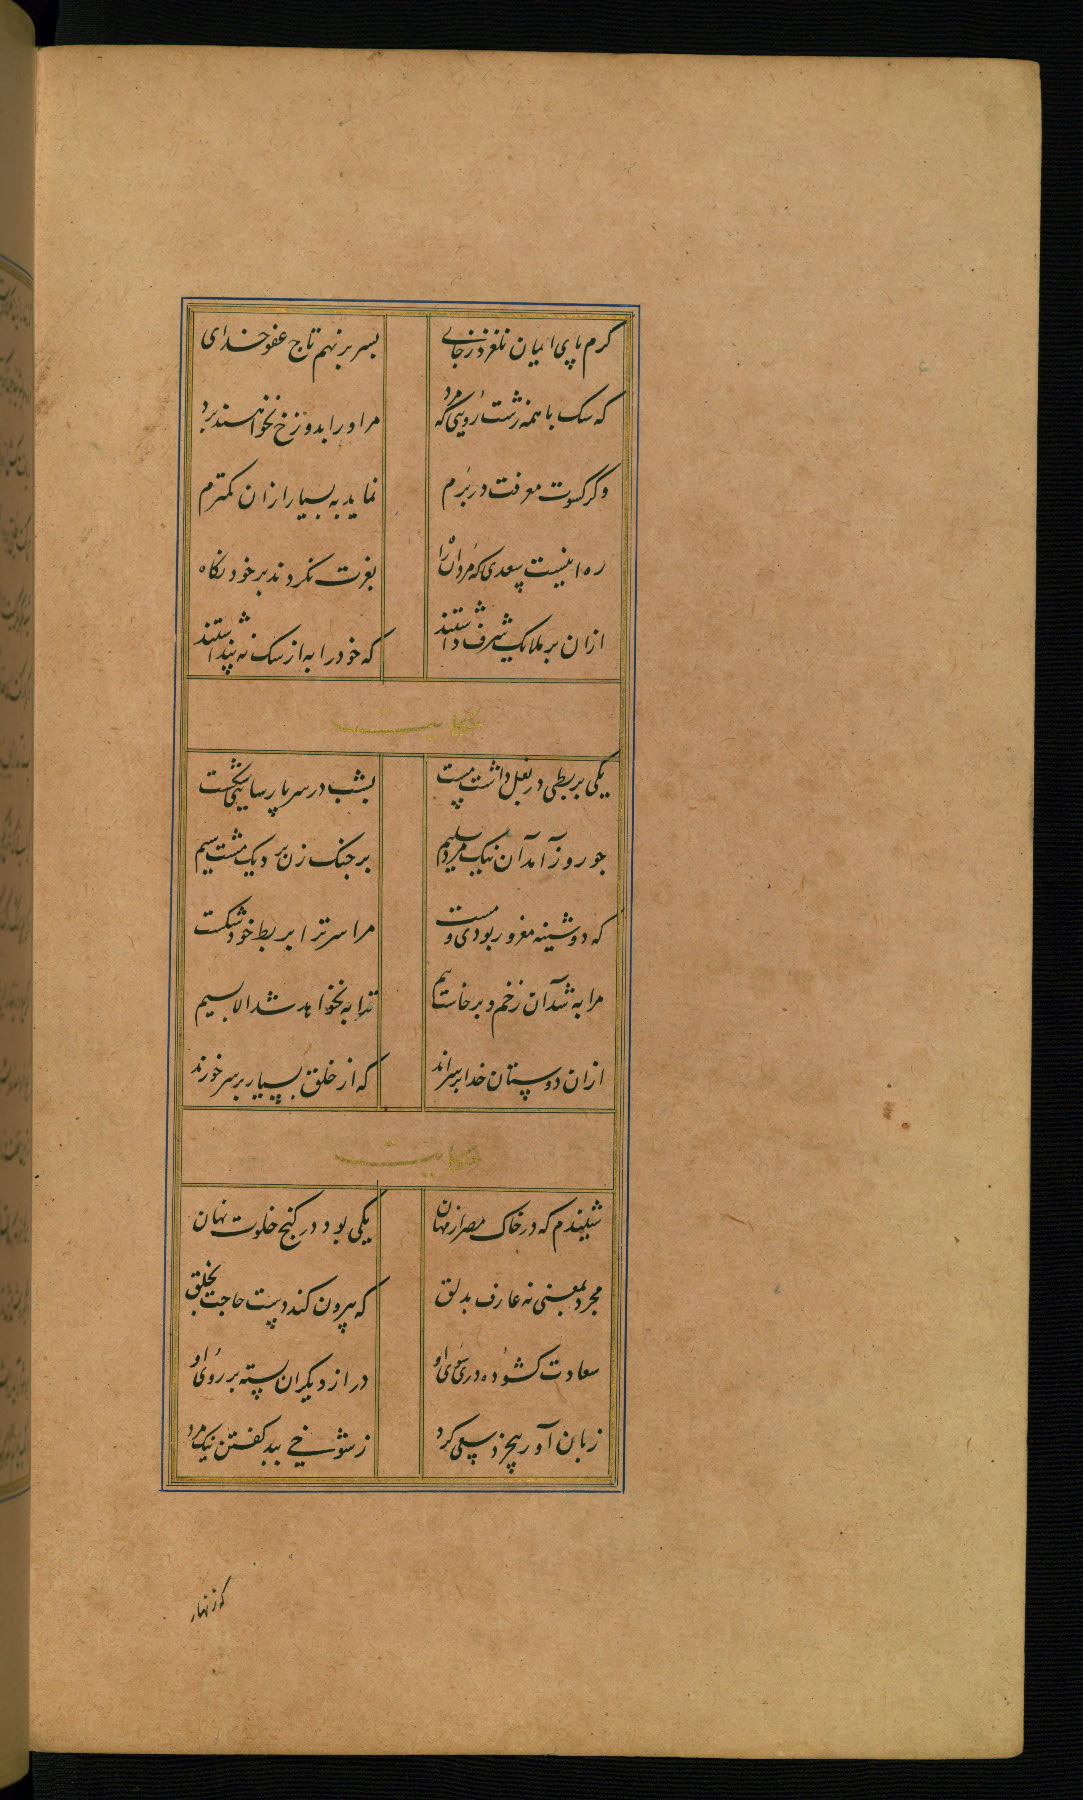 کرم پای ایمان نلغزد ز جای بسر بر نهم تاج عفو خدای
که سک با همه زشت رویی که مرد مر او را بدوزخ نخواهند برد
وکر کسوت معرفت در برم نماید به بسیار ازان کمترم
ره اینست سعدی که مردان راه بعزت نکردند بر خود نکاه
ازان بر ملایک شرف داشتند که خود را به از سک نه پنداشتند
حکایت
یکی بربطی در بغل داشت مست بشب در سر پارسایی شکست
جو روز آمد آن نیک مرد سلیم بر جنک زن برد یک مشت سیم
که دوشینه مغرور بودی و مست مرا سر ترا بربط خود شکست
مرا به شد آن زخم و برخاست بیم ترا به نخواهد شد الا بسیم
ازان دوستان خدا بر سراند که از خلق بسیار بر سر خورند
حکایت
شنیدم که در خاک مصر از مهان یکی بود در کنج خلوت نهان
مجرد بمعنی نه عارف بدلق که بیرون کند دست حاجت بخلق
سعادت کشوده دری سوی او در از دیکران بسته بر روی او
زبان آور بیخرد سعی کرد ز شوخی ببد کفتن نیک مرد
که زنهار